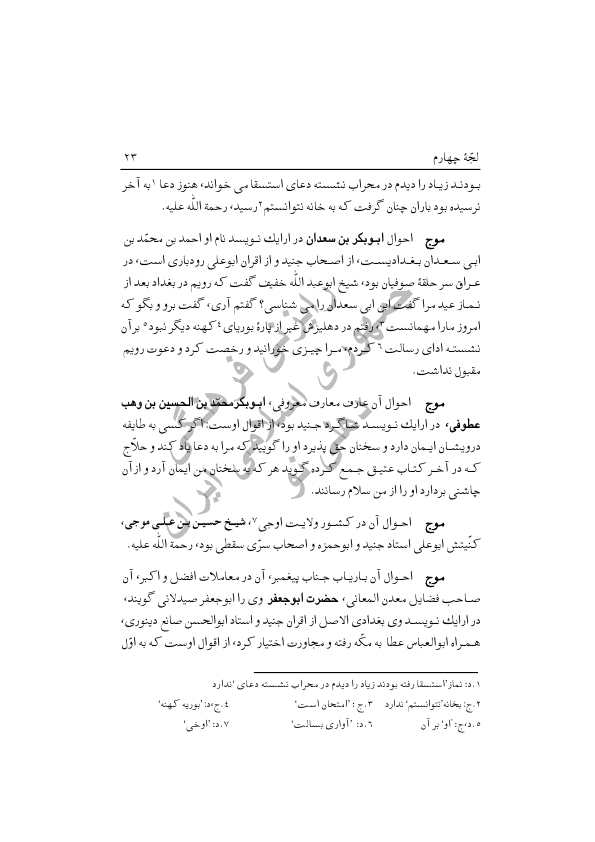 لجّهٔ چهارم ۲۳
بودند زیاد را دیدم در محراب نشسته دعای استسقا می خواند، هنوز دعا ۱ به آخر
نرسیده بود باران چنان گرفت که به خانه نتوانستم ۲ رسید، رحمة الله علیه.
موج احوال ابوبکر بن سعدان در ارایك نویسد نام او احمد بن محمّد بن
ابی سعدان بغدادیست، از اصحاب جنید و از اقران ابوعلی رودباری است، در
عراق سر حلقهٔ صوفیان بود، شیخ ابوعبد الله خفیف گفت که رویم در بغداد بعد از
نماز عید مرا گفت ابن ابی سعدان را می شناسی؟ گفتم آری، گفت برو و بگو که
امروز ما را مهمانست ۳، رفتم در دهلیزش غیر از پارهٔ بوریای ۴ کهنه دیگر نبود ۵ بر آن
نشسته ادای رسالت ۶ کردم، مرا چیزی خورانید و رخصت کرد و دعوت رویم
مقبول نداشت.
موج احوال آن عارف معارف معروفی، ابوبکر محمّد بن الحسین بن وهب
عطوفی، در ارایك نویسد شاگرد جنید بود، از اقوال اوست: اگر کسی به طایفه
درویشان ایمان دارد و سخنان حق پذیرد او را گویید که مرا به دعا یاد کند و حلّاج
که در آخر کتاب عتیق جمع کرده گوید هر که به سخنان من ایمان آرد و از آن
چاشنی بردارد او را از من سلام رسانند.
موج احوال آن در کشور ولایت اوجی ۷، شیخ حسین بن علی موجی،
کنّیتش ابوعلی استاد جنید و ابوحمزه و اصحاب سرّی سقطی بود، رحمة الله علیه.
موج احوال آن باریاب جناب پیغمبر، آن در معاملات افضل و اکبر، آن
صاحب فضایل معدن المعانی، حضرت ابوجعفر وی را ابوجعفر صیدلانی گویند،
در ارایك نویسد وی بغدادی الاصل از اقران جنید و استاد ابوالحسن صانع دینوری،
همراه ابوالعباس عطا به مکّه رفته و مجاورت اختیار کرد، از اقوال اوست که به اوّل
۱. د: نماز 'استسقا رفته بودند زیاد را دیدم در محراب نشسته دعای' ندارد
۲. ج: بخانه 'نتوانستم' ندارد ۳. ج: 'امتحان است' ۴. ج، د: 'بوریه کهنه'
۵. د، ج: 'او' بر آن ۶. د: 'آواری بسالت' ۷. د: 'اوخی'
رایزنی فرهنگی
جمهوری اسلامی ایران
دهلی نو